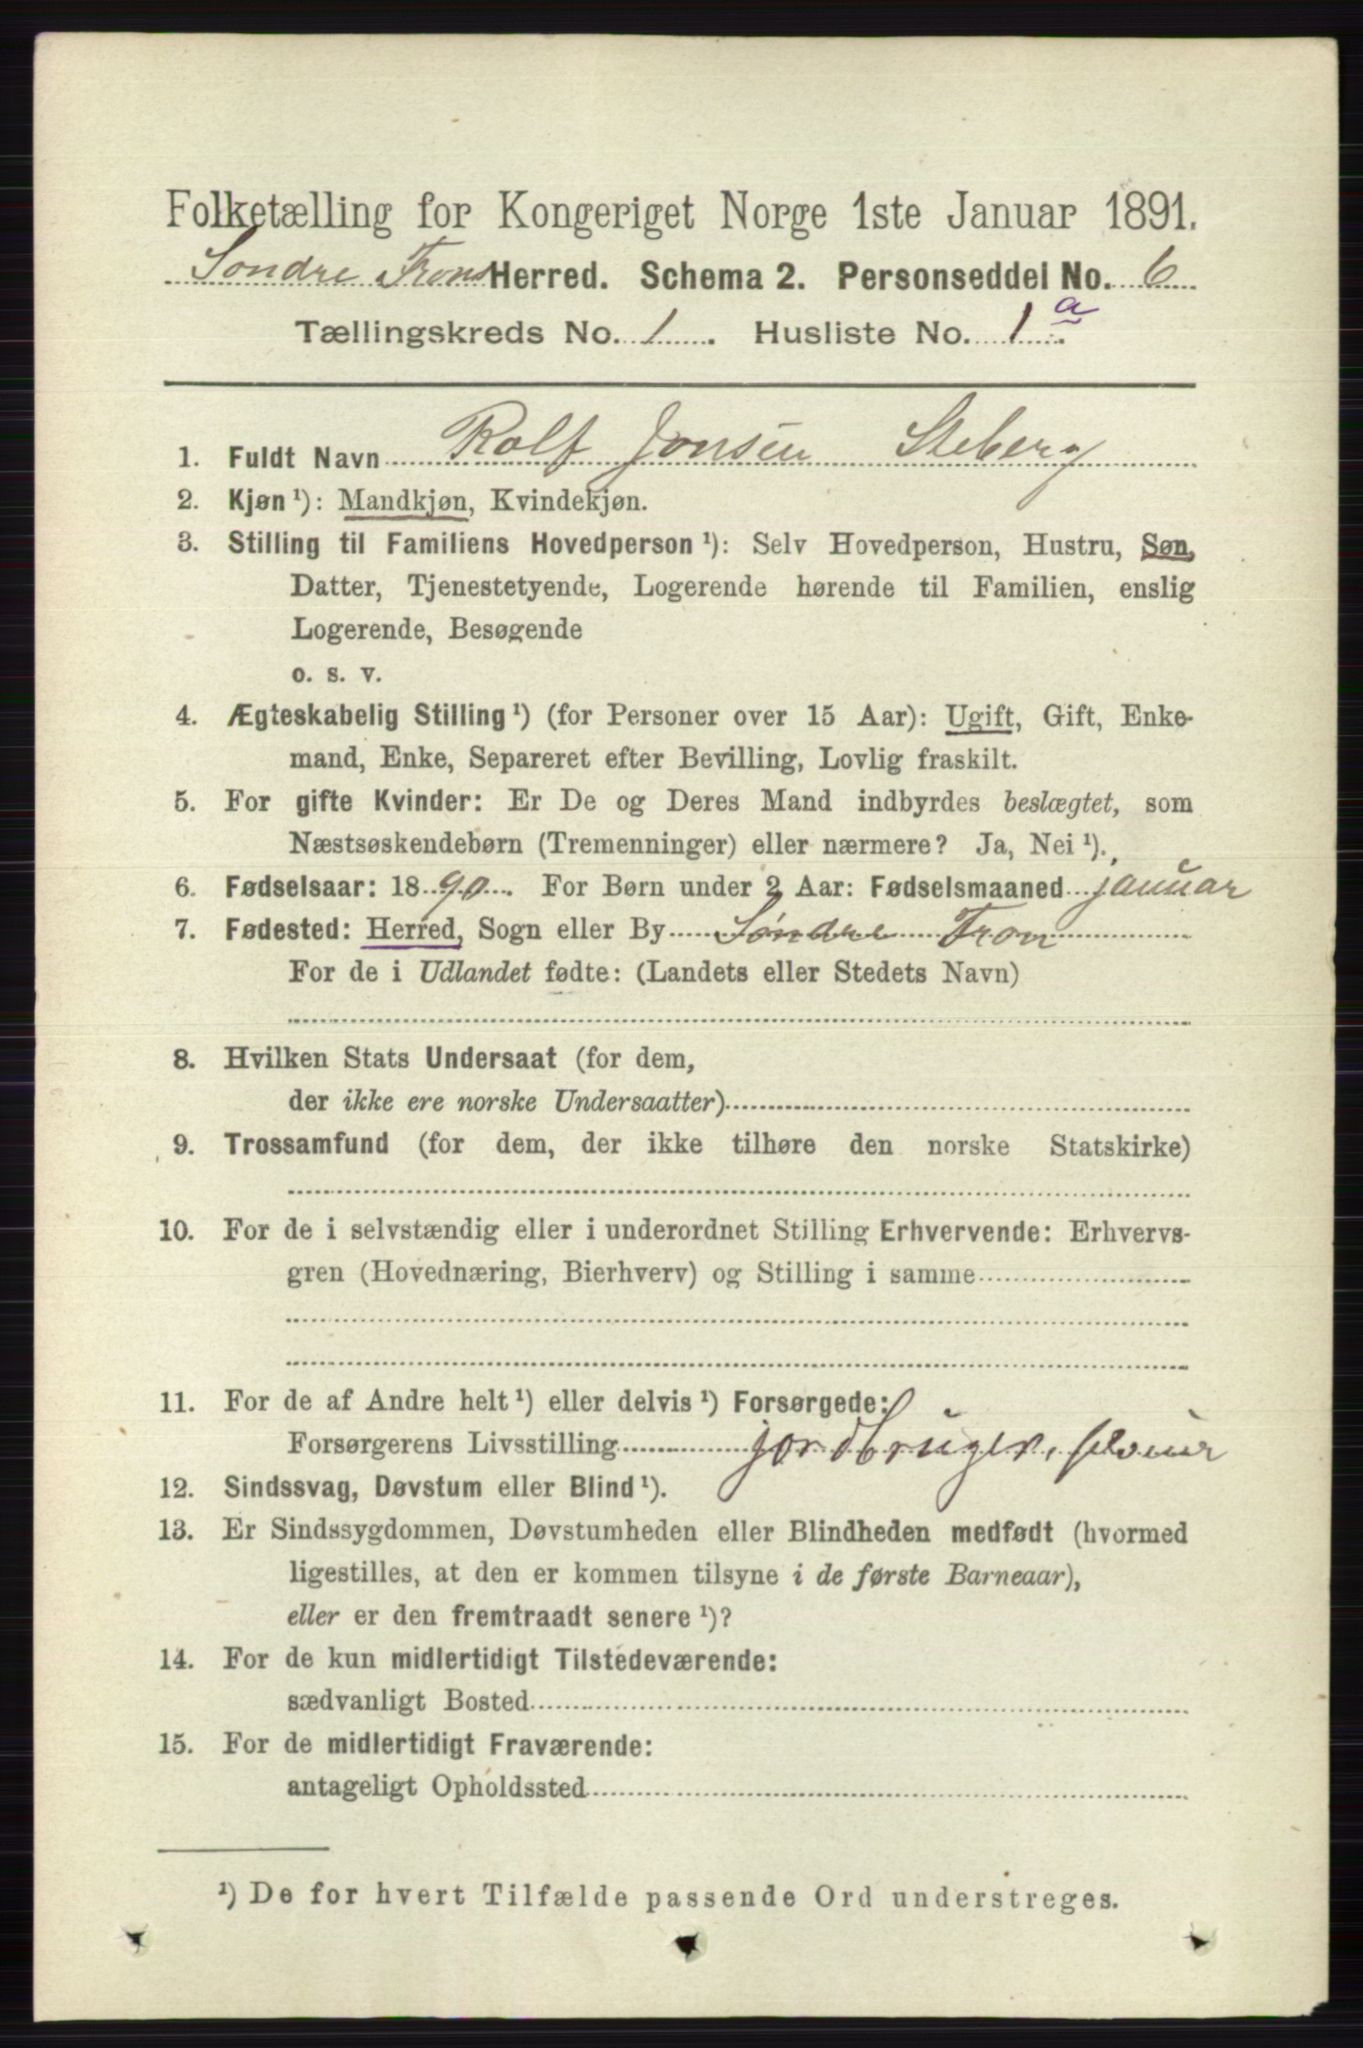 Folketælling for Kongeriget Norge 1ste Januar 1891.
Søndre Frons Herred. Schema 2. Personseddel No. 6
Tællingskreds No. 1. Husliste No. 1 a.
1. Fuldt Navn Rolf Jonsen Steberg
2. Kjøn ¹): Mandkjøn, Kvindekjøn.
3. Stilling til Familiens Hovedperson ¹): Selv Hovedperson, Hustru, Søn,
Datter, Tjenestetyende, Logerende hørende til Familien, enslig
Logerende, Besøgende
o. s. v.
4. Ægteskabelig Stilling ¹) (for Personer over 15 Aar): Ugift, Gift, Enke-
mand, Enke, Separeret efter Bevilling, Lovlig fraskilt.
5. For gifte Kvinder: Er De og Deres Mand indbyrdes beslægtet, som
Næstsøskendebørn (Tremenninger) eller nærmere? Ja, Nei ¹).
6. Fødselsaar: 1890. For Børn under 2 Aar: Fødselsmaaned januar
7. Fødested: Herred, Sogn eller By Søndre Fron
For de i Udlandet fødte: (Landets eller Stedets Navn)
8. Hvilken Stats Undersaat (for dem,
der ikke ere norske Undersaatter)
9. Trossamfund (for dem, der ikke tilhøre den norske Statskirke)
10. For de i selvstændig eller i underordnet Stilling Erhvervende: Erhvervs-
gren (Hovednæring, Bierhverv) og Stilling i samme
11. For de af Andre helt ¹) eller delvis ¹) Forsørgede:
Forsørgerens Livsstilling jordbruger, selveier
12. Sindssvag, Døvstum eller Blind ¹).
13. Er Sindssygdommen, Døvstumheden eller Blindheden medfødt (hvormed
ligestilles, at den er kommen tilsyne i de første Barneaar),
eller er den fremtraadt senere ¹)?
14. For de kun midlertidigt Tilstedeværende:
sædvanligt Bosted
15. For de midlertidigt Fraværende:
antageligt Opholdssted
¹) De for hvert Tilfælde passende Ord understreges.